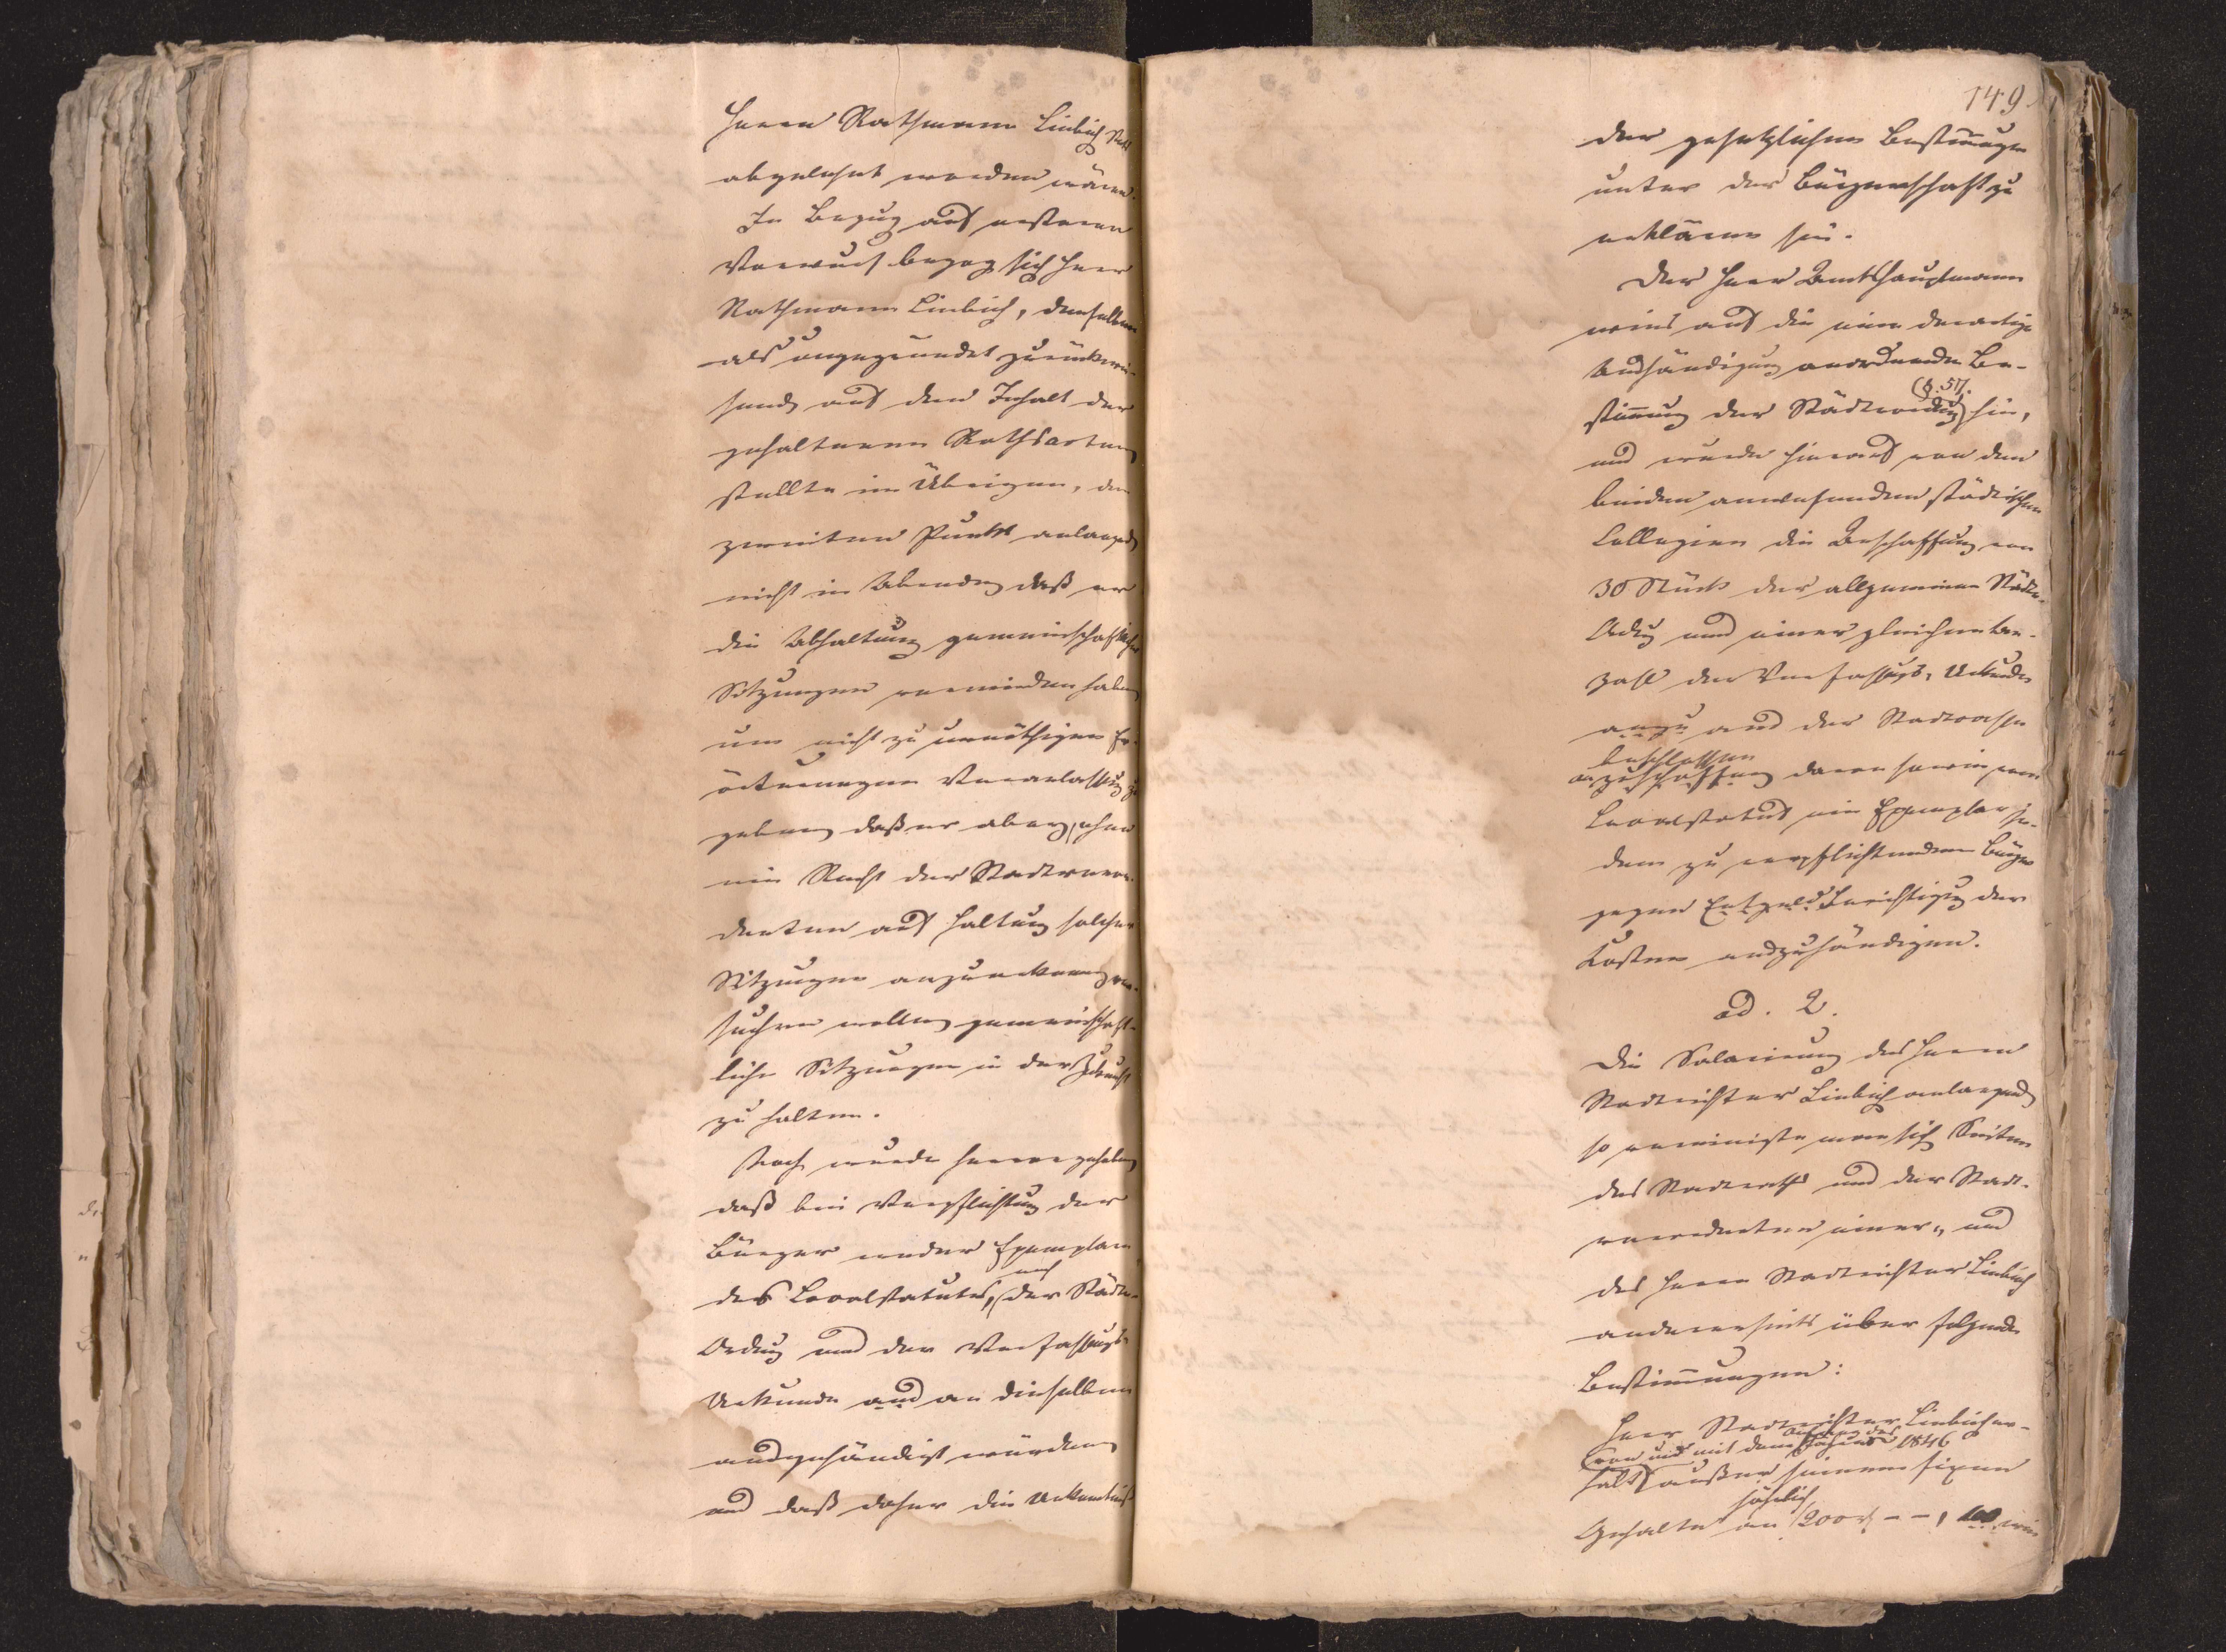 Herrn Rathmann Liebich
abgelehnt worden wären.
In Bezug auf ersteren
Vorwurf bezog sich Herr
Rathmann Liebich, denselben
als ungegründet zurückwei-
send, auf den Inhalt der
gehaltenen Rathsacten,
stellte im Übrigen, den
zweiten Punkt anlangend,
nicht in Abrede, daß er
die Abhaltung gemeinschaftlicher
Sitzungen vermieden habe,
um nicht zu unnöthigen Er-
örterungen Veranlassung zu
geben, daß er aber, ohne
ein Recht der Stadtveror-
dneten auf Haltung solcher
Sitzungen anzuerkennen, ver-
suchen wolle, gemeinschaft-
liche Sitzungen in der Zukunft
zu halten.
Noch wurde hervorgehoben,
daß bei Verpflichtung der
Bürger weder Exemplare
des Localstatutes, noch der Städte-
Ordng und der Verfassungs-
Urkunde an dieselben
ausgehändigt würden,
und daß daher die Unkenntniß
149.
der gesetzlichen Bestimmungen
unter der Bürgerschaft zu
erklären sei.
Der Herr Amtshauptmann
wies auf die eine derartige
Aushändigung anordnende Be-
stimmung der Städteordng (§. 57). hin,
und wurde hierauf von den
beiden anwesenden städtischen
Collegien die Anschaffung von
30 Stück der allgemeinen Städte-
Ordng und einer gleichen An-
zahl der Verfassungs-Urkunde
aus der Stadtcasse
beschlossen
davon sowie vom
Localstatut ein Exemplar je-
dem zu verpflichtenden Bürger
gegen Berichtigung der
Kosten auszuhändigen.
ad. 2.
Die Salarirung des Herrn
Stadtrichter Liebich anlangend,
so vereinigte man sich Seiten
des Stadtraths und der Stadt-
verordneten einer-, und
des Herrn Stadtrichter Liebich
andererseits über folgende
Bestimmungen:
Herr Stadtrichter Liebich er-
von und mit dem Anfang des Jahres 1846
hält außer seinem fixen
Gehalte an jährlich 200 – –, wie